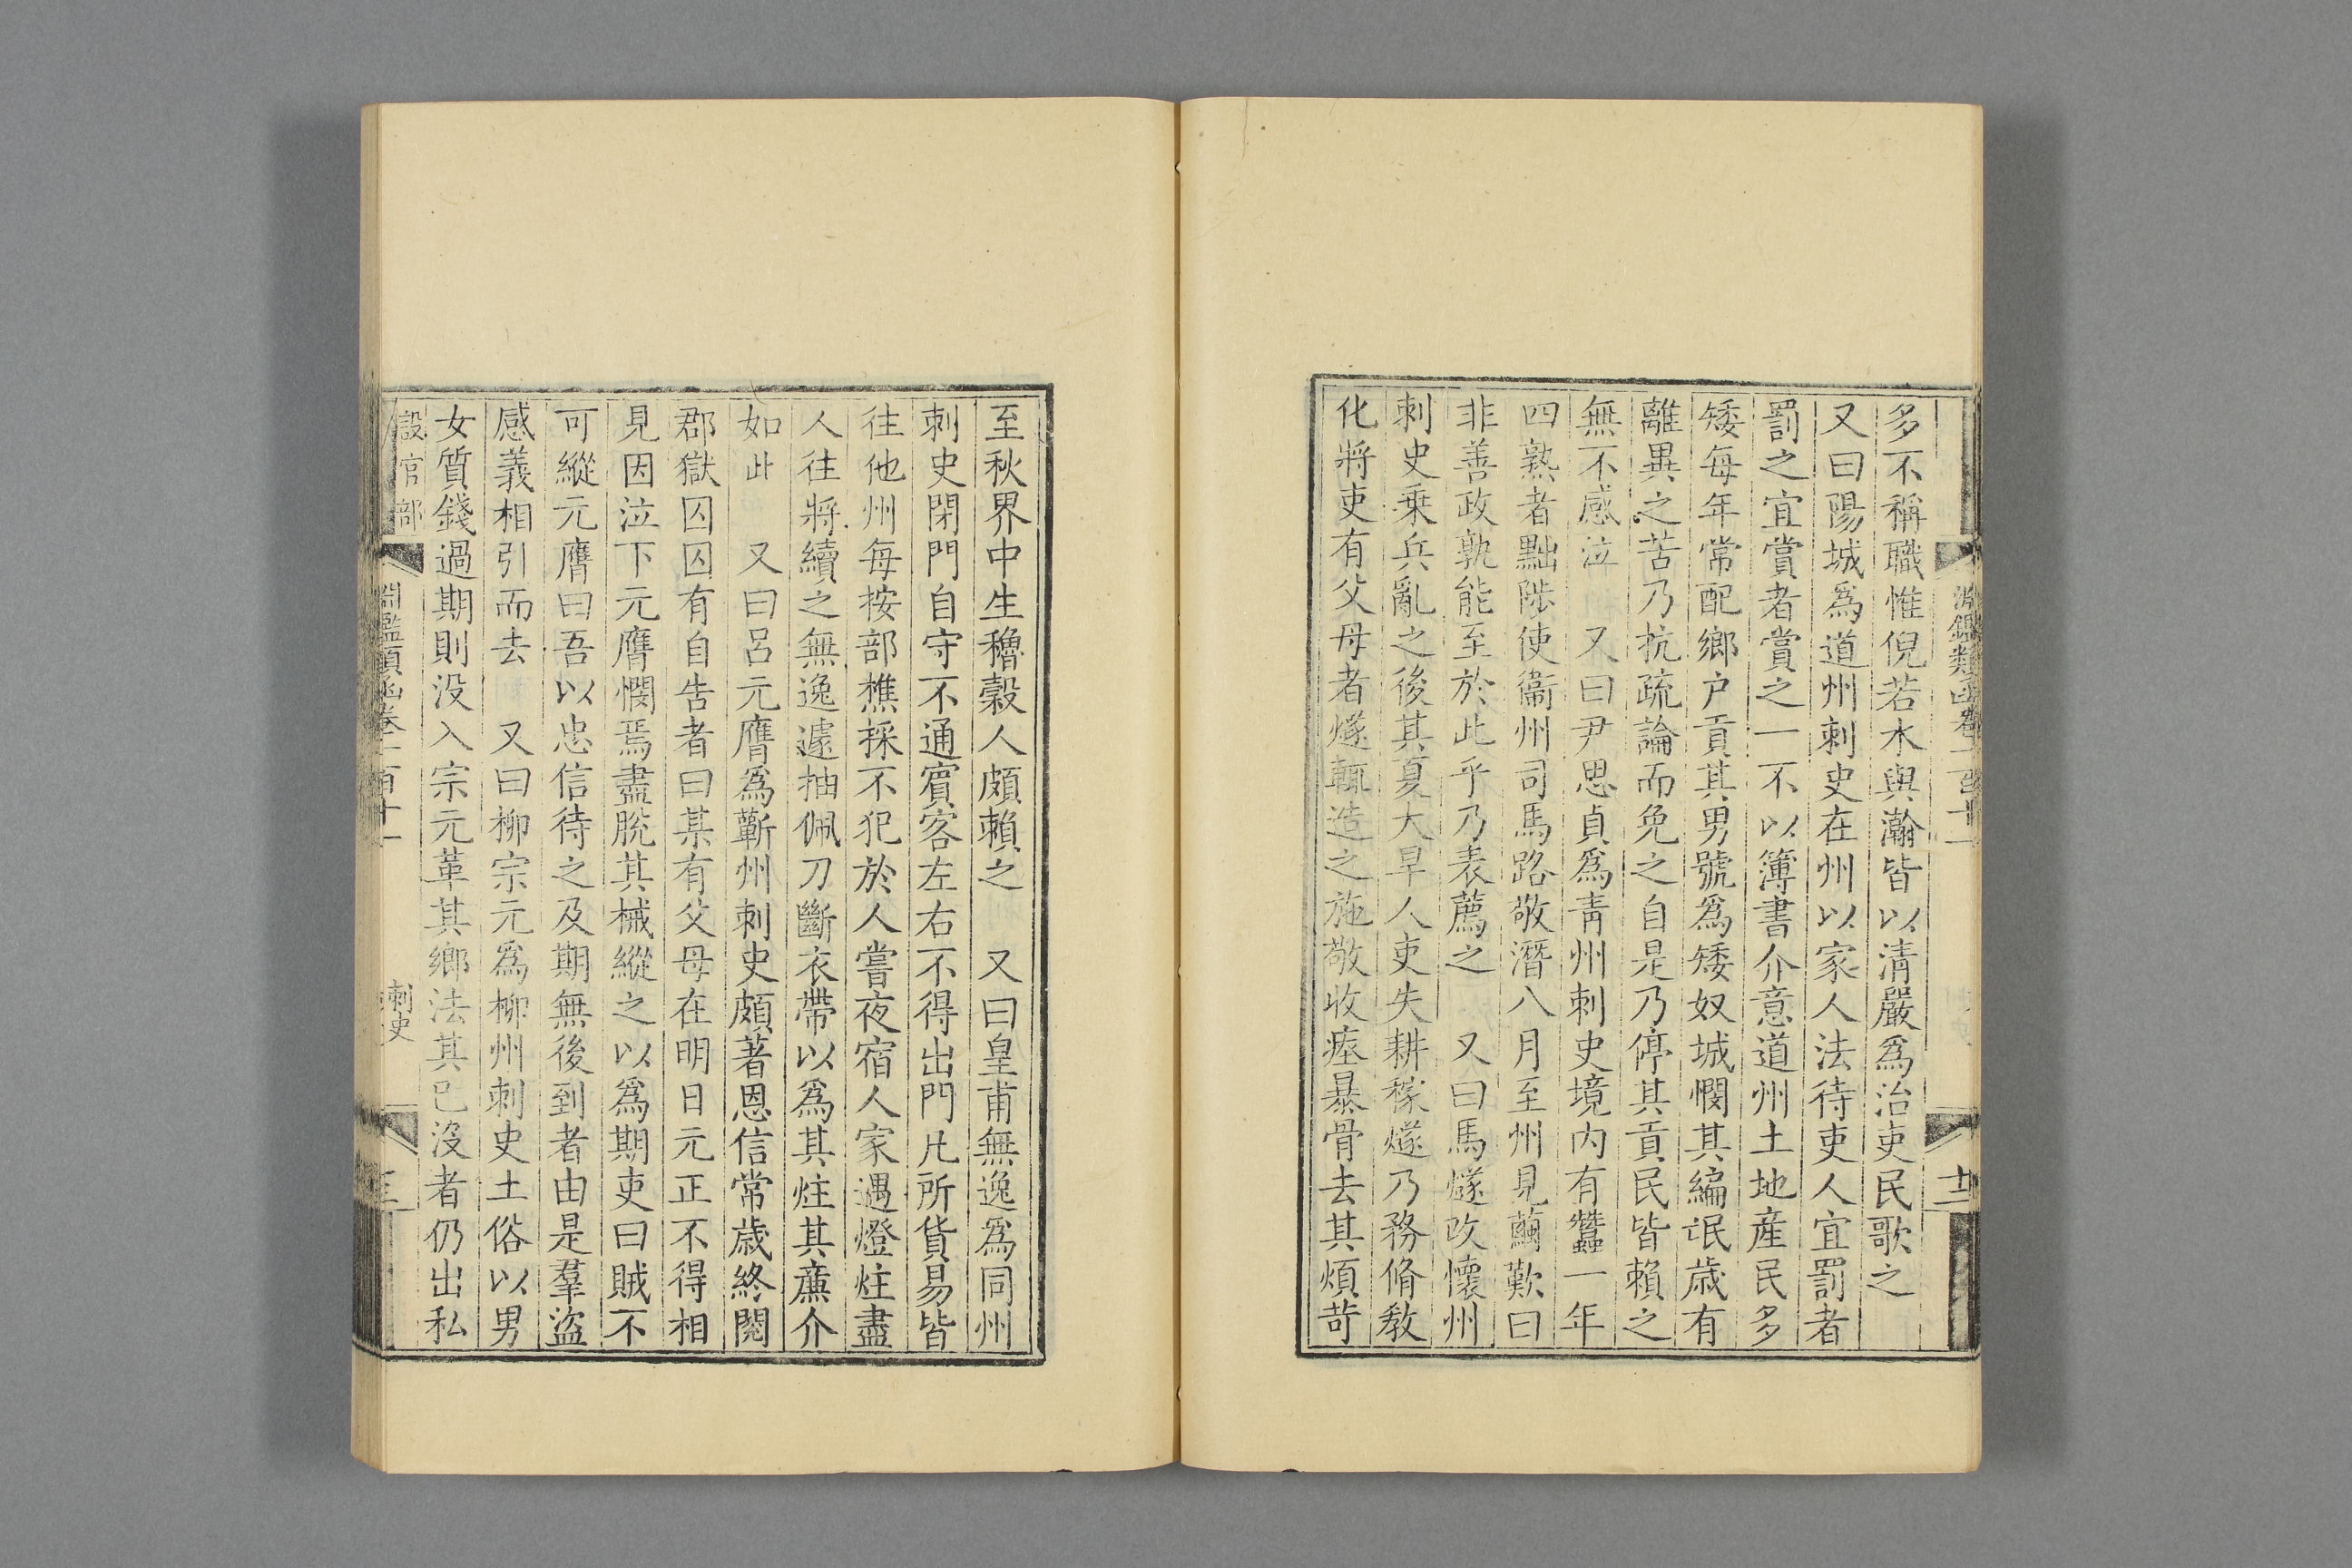 淵鑑類函卷一百十一
十二
多不稱職惟倪若水與瀚皆以清嚴爲治吏民歌之
又曰陽城爲道州刺史在州以家人法待吏人宜罰者
罰之宜賞者賞之一不以簿書介意道州土地產民多
矮每年常配鄉户貢其男號爲矮奴城憫其編氓歲有
離異之苦乃抗疏論而免之自是乃停其貢民皆賴之
無不感泣　又曰尹思貞爲青州刺史境內有蠶一年
四熟者黜陟使衞州司馬路敬潛八月至州見繭歎曰
非善政孰能至於此乎乃表薦之　又曰馬燧改懷州
刺史乗兵亂之後其夏大旱人吏失耕稼燧乃務脩教
化將吏有父母者燧輒造之施敬收瘞暴骨去其煩苛
至秋界中生穭穀人頗賴之　又曰皇甫無逸爲同州
刺史閉門自守不通賓客左右不得出門凡所貨易皆
往他州每按部樵採不犯於人嘗夜宿人家遇燈炷盡
人往將續之無逸遽抽佩刀斷衣帶以爲其炷其亷介
如此　又曰呂元膺爲蘄州刺史頗著恩信常歲終閱
郡獄囚囚有自告者曰某有父母在明日元正不得相
見因泣下元膺憫焉盡脫其械縱之以爲期吏曰賊不
可縱元膺曰吾以忠信待之及期無後到者由是羣盜
感義相引而去　又曰柳宗元爲柳州刺史土俗以男
女質錢過期則没入宗元革其鄉法其已没者仍出私
設官部
淵鑑類函卷一百十一
刺史